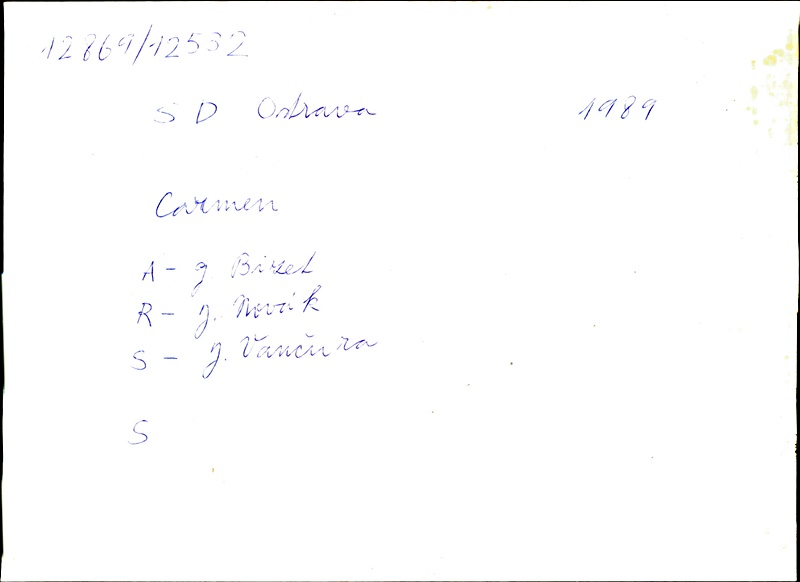 12869/12532
S D Ostrava 1989
Carmen
A - g Bizet
R - J. Novák
S - J. Vančura
S